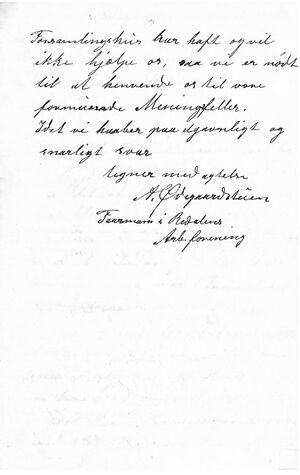 Forsamlingshus har haft og vil
ikke hjælpe os, saa vi er nødt
til at henvende os til vore
formuende Meningsfeller.
Idet vi haaber paa et gavnligt og
snarligt svar
tegner med agtelse
A. Ødegaardstuen
Formann i Redalens
Arb. forening